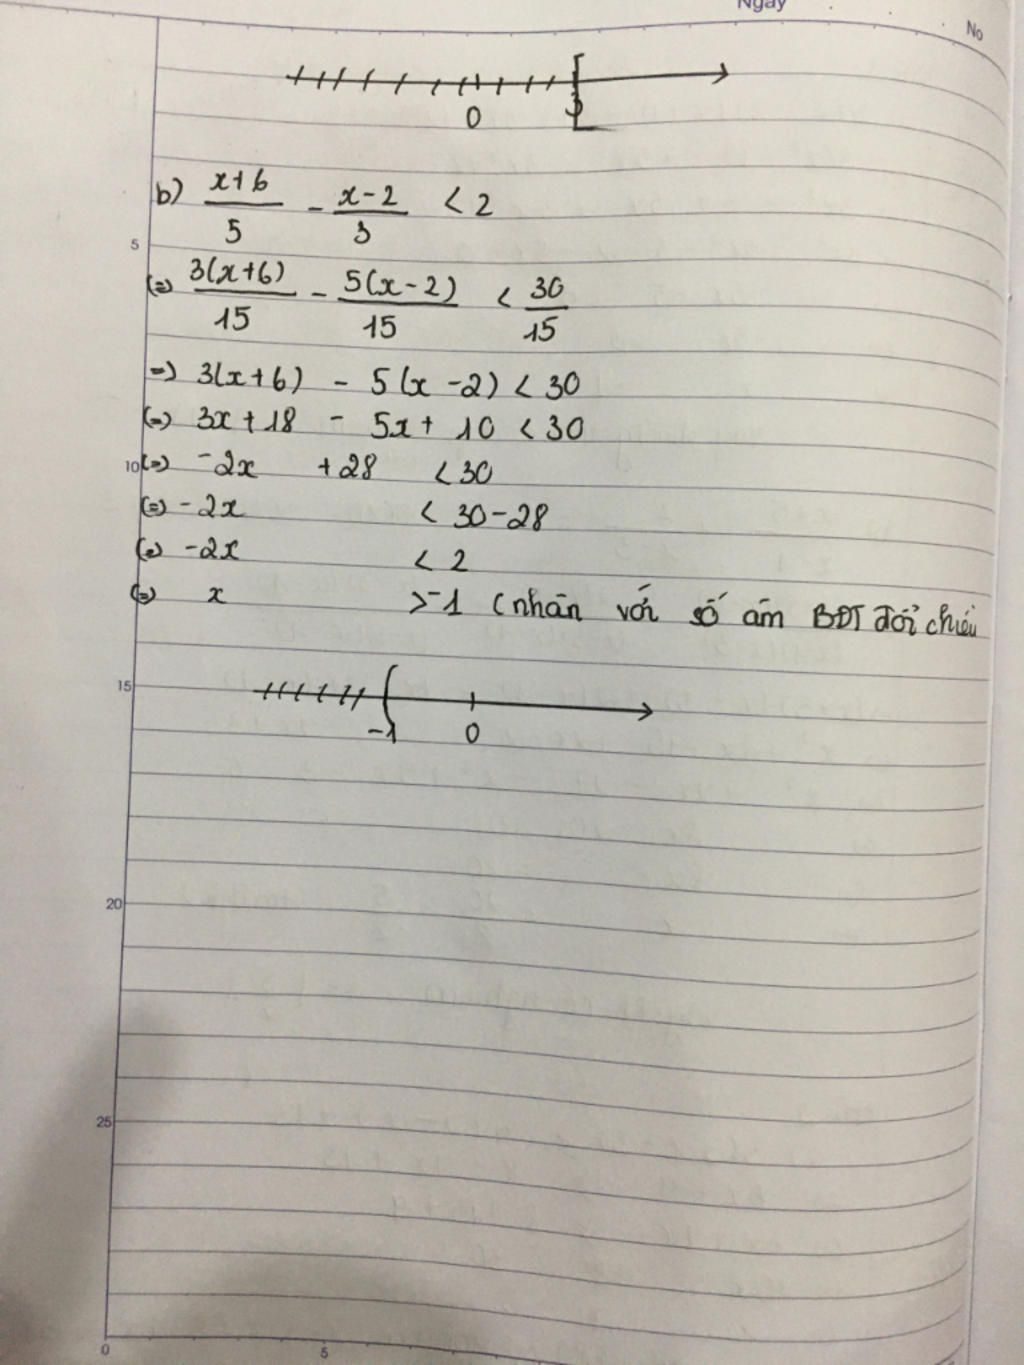 Ngày
No
0 3
b) x+6/5 - x-2/3 < 2
5
(=) 3(x+6)/15 - 5(x-2)/15 < 30/15
=) 3(x+6) - 5(x-2) < 30
(=) 3x+18 - 5x+ 10 < 30
10 (=) -2x +28 < 30
(=) -2x < 30-28
(=) -2x < 2
(=) x >-1 (nhân với số âm BĐT đổi chiều
15
-1 0
20
25
0 5